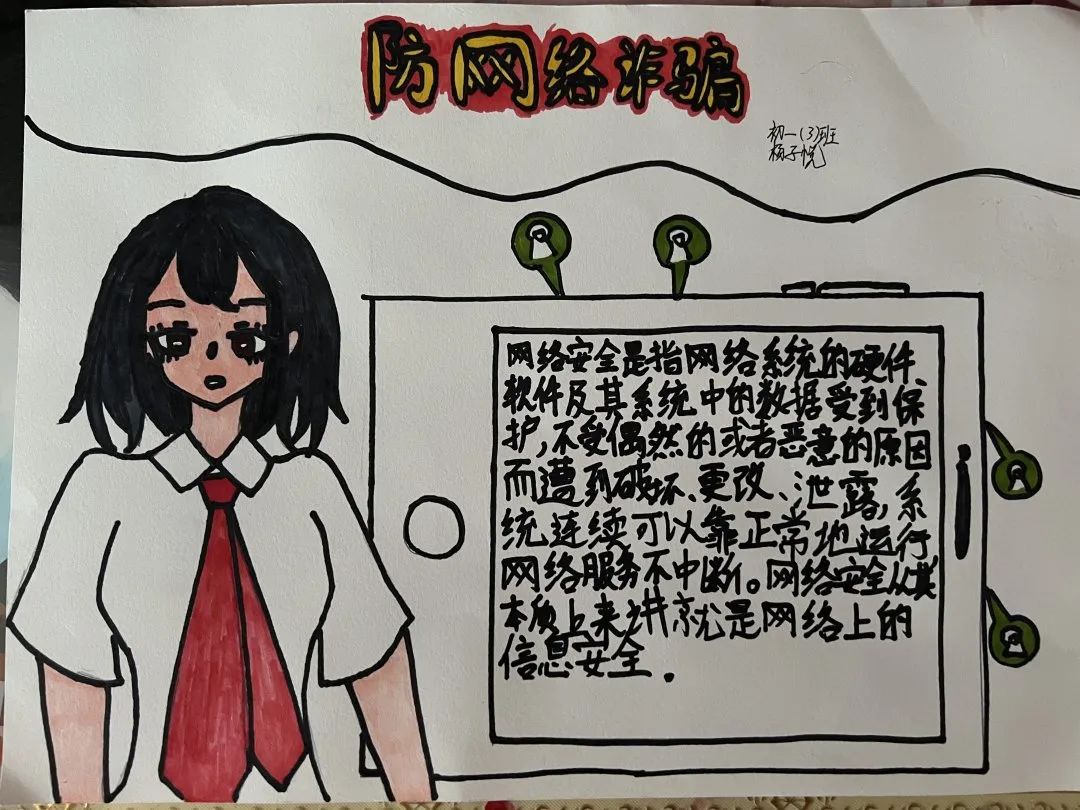 防网络诈骗
初一(3)班
杨子悦
网络安全是指网络系统的硬件、
软件及其系统中的数据受到保
护,不受偶然的或者恶意的原因
而遭到破坏、更改、泄露,系
统连续可以靠正常地运行
网络服务不中断。网络安全从其
本质上来讲就是网络上的
信息安全.